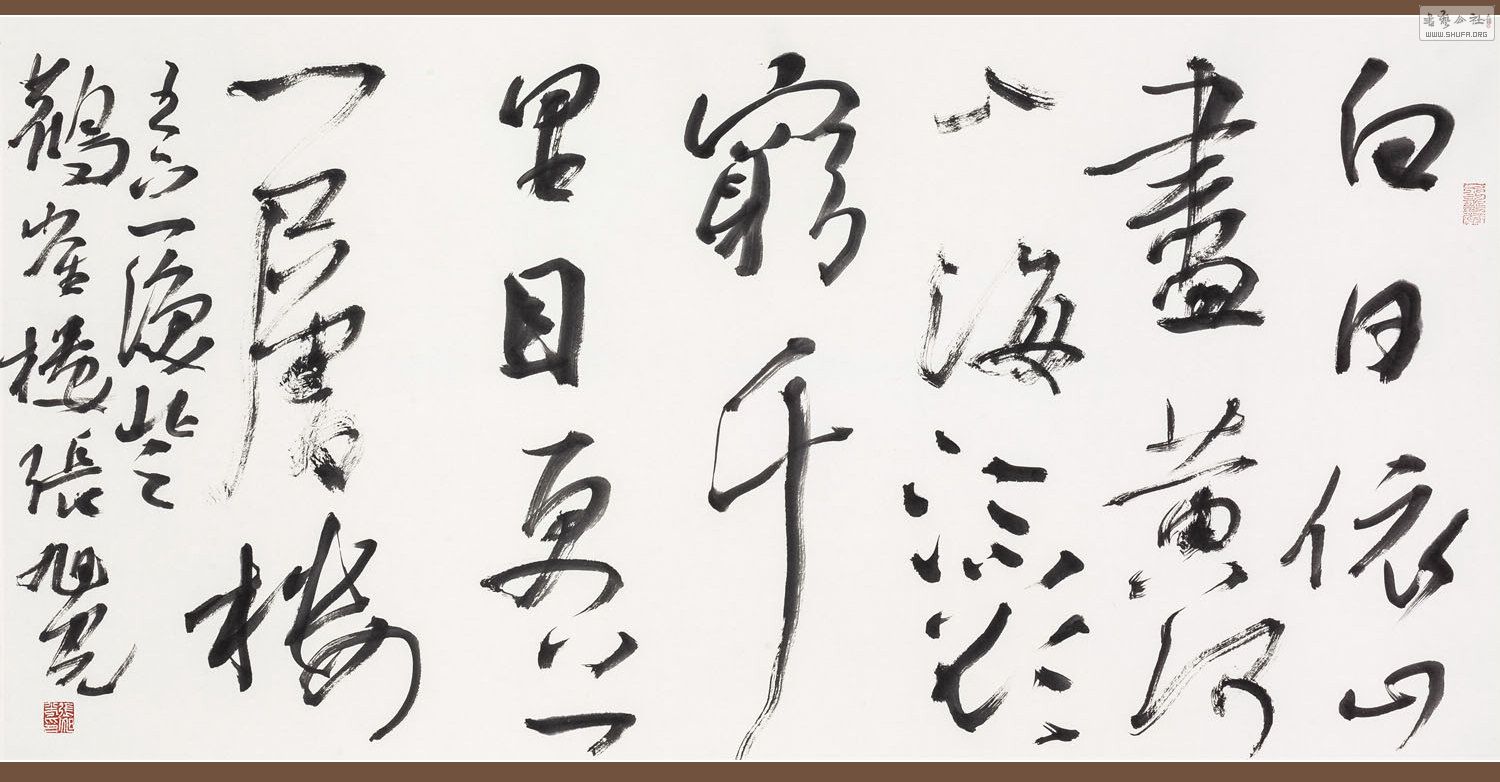 白日依山
盡黄河
入海流欲
窮千
里目更上
一層樓
王之渙登
鸛雀樓張旭光
書藝公社
WWW.SHUFA.ORG